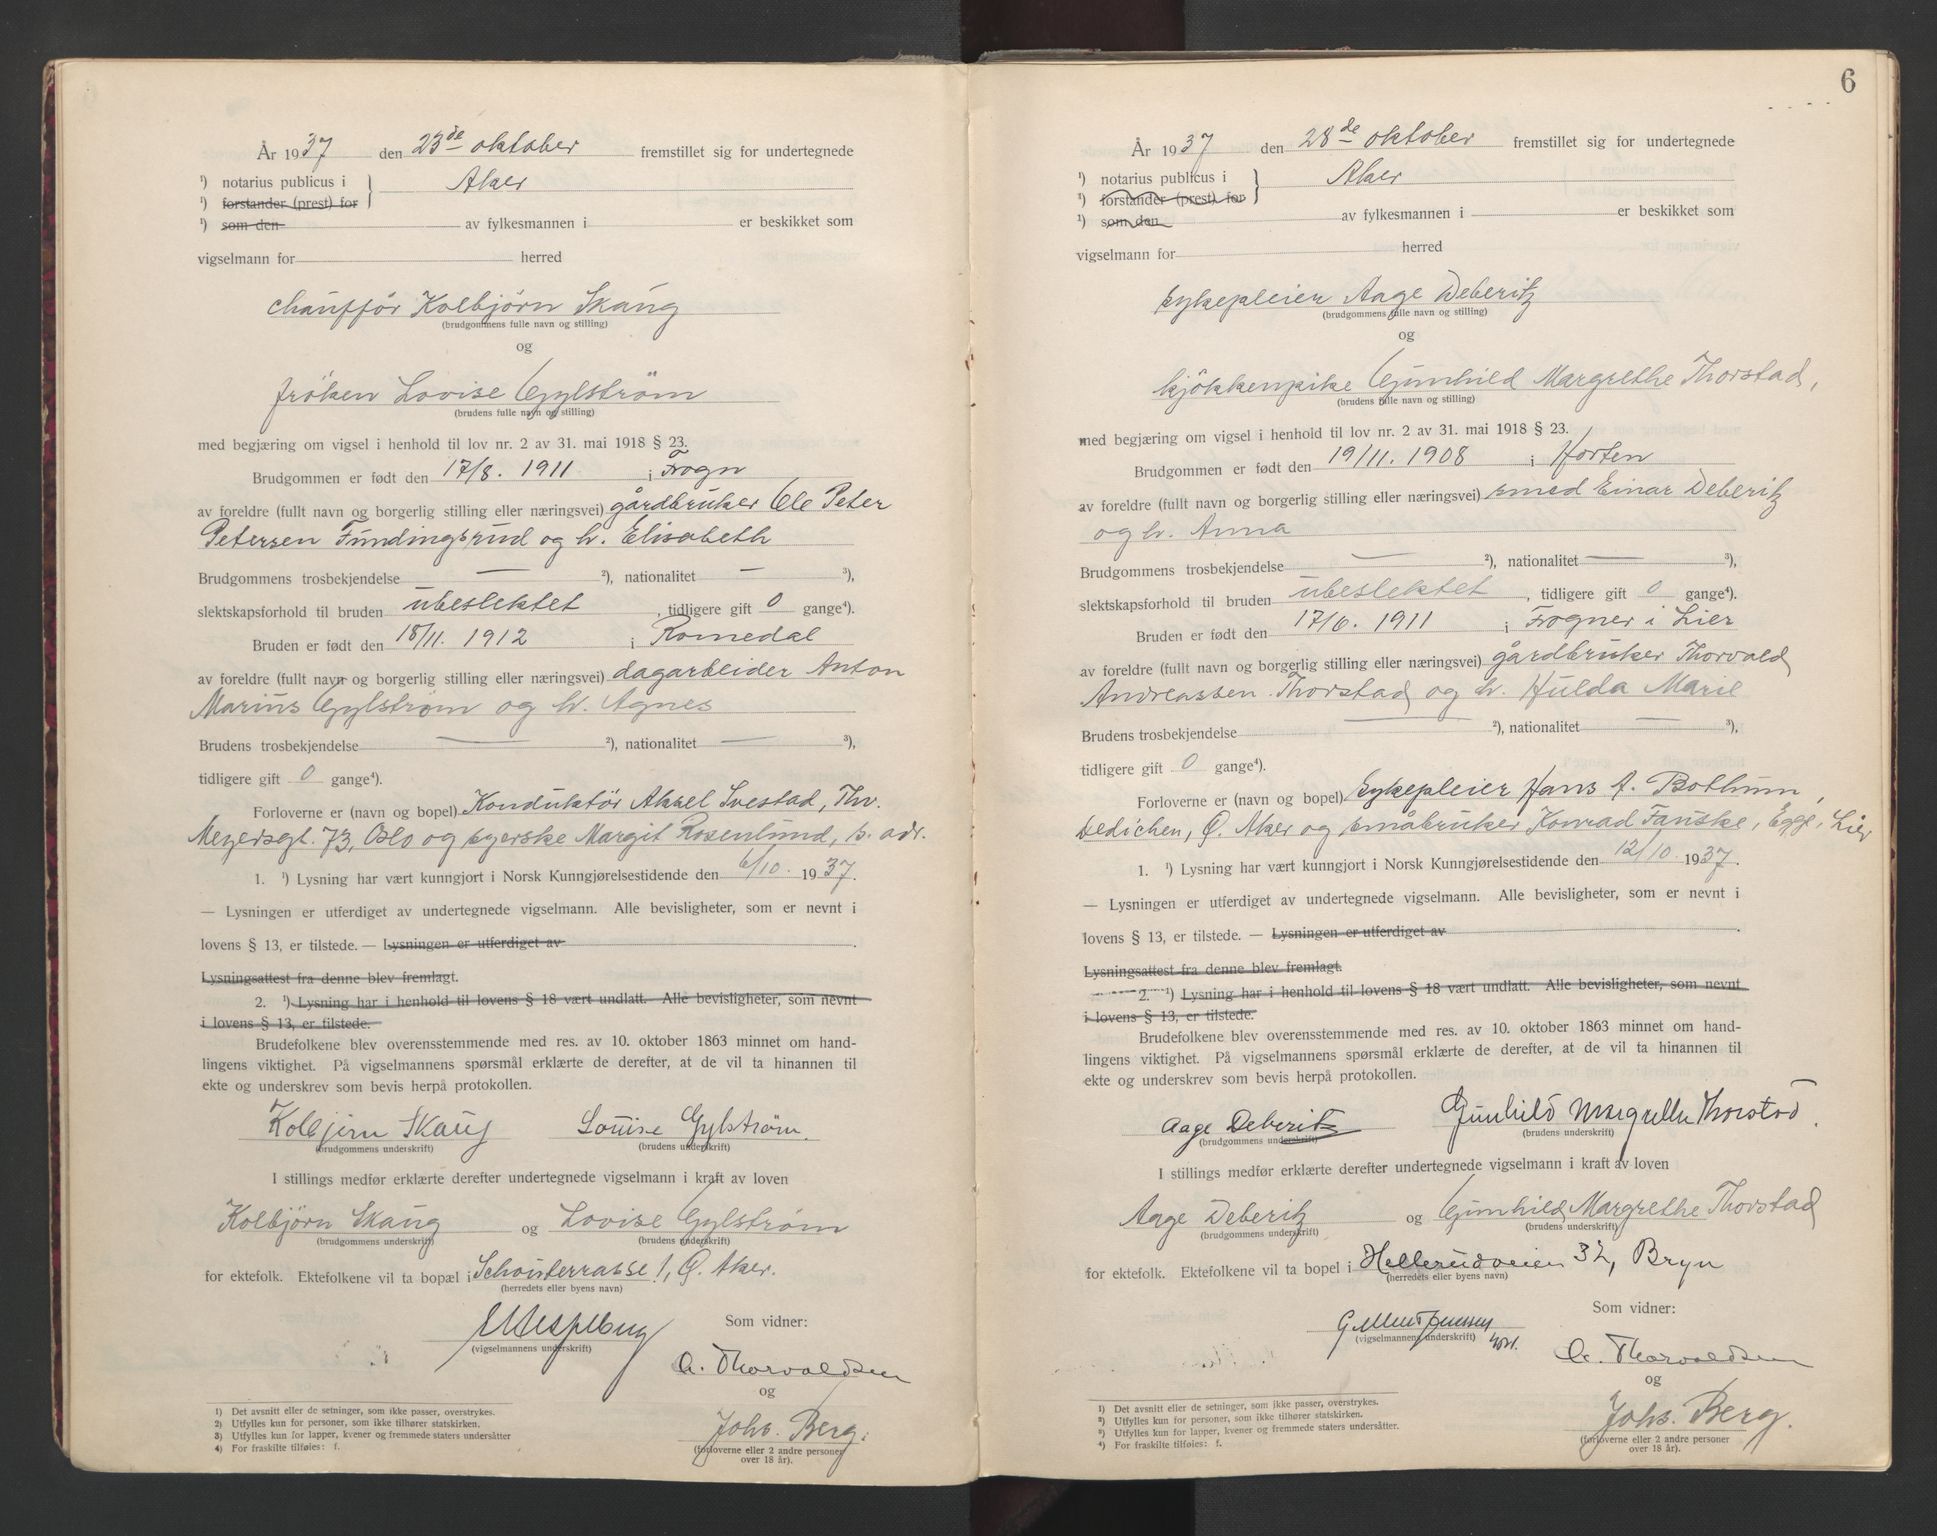 År 1937 den 23de oktober fremstillet sig for undertegnede
¹) notarius publicus i } Aker
¹) forstander (prest) for
¹) som den av fylkesmannen i er beskikket som
vigselmann for herred
chaufför Kolbjörn Skaug
(brudgommens fulle navn og stilling)
og
fröken Lovise Gylström
(brudens fulle navn og stilling)
med begjæring om vigsel i henhold til lov nr. 2 av 31. mai 1918 § 23.
Brudgommen er født den 17/8. 1911 i Frogn
av foreldre (fullt navn og borgerlig stilling eller næringsvei) gårdbruker Ole Peter
Petersen Fundingsrud og h. Elisabeth
Brudgommens trosbekjendelse — ²), nationalitet — ³),
slektskapsforhold til bruden ubeslektet, tidligere gift 0 gange⁴).
Bruden er født den 18/11. 1912 i Romedal
av foreldre (fullt navn og borgerlig stilling eller næringsvei) dagarbeider Anton
Marius Gylström og h. Agnes
Brudens trosbekjendelse — ²), nationalitet — ³),
tidligere gift 0 gange⁴).
Forloverne er (navn og bopel) Konduktör Aksel Svestad, Thv.
Meyersgt. 73, Oslo og syerske Margit Rosenlund, s. adr.
1. ¹) Lysning har vært kunngjort i Norsk Kunngjørelsestidende den 6/10. 1937.
— Lysningen er utferdiget av undertegnede vigselmann. Alle bevisligheter, som er nevnt i
lovens § 13, er tilstede. — Lysningen er utferdiget av .
Lysningsattest fra denne blev fremlagt.
2. ¹) Lysning har i henhold til lovens § 18 vært undlatt. Alle bevisligheter, som nevnt
i lovens § 13, er tilstede.
Brudefolkene blev overensstemmende med res. av 10. oktober 1863 minnet om hand-
lingens viktighet. På vigselmannens spørsmål erklærte de derefter, at de vil ta hinannen til
ekte og underskrev som bevis herpå protokollen.
Kolbjørn Skaug Lovise Gylstrøm.
(brudgommens underskrift) (brudens underskrift)
I stillings medfør erklærte derefter undertegnede vigselmann i kraft av loven
Kolbjörn Skaug og Lovise Gylström
(brudgommens underskrift) (brudens underskrift)
for ektefolk. Ektefolkene vil ta bopæl i Schouterrasse 1, Ö. Aker.
(herredets eller byens navn)
Som vidner:
(vigselmannens underskrift)
A. Thorvaldsen
og
Johs. Berg.
(forloverne eller 2 andre personer
over 18 år).
1) Det avsnitt eller de setninger, som ikke passer, overstrykes.
2) Utfylles kun for personer, som ikke tilhører statskirken.
3) Utfylles kun for lapper, kvener og fremmede staters undersåtter
4) For fraskilte tilføies: f.
6
År 1937 den 28de oktober fremstillet sig for undertegnede
¹) notarius publicus i } Aker
¹) forstander (prest) for
¹) som den av fylkesmannen i er beskikket som
vigselmann for herred
sykepleier Aage Deberitz
(brudgommens fulle navn og stilling)
og
kjökkenpike Gunhild Margrethe Thorstad,
(brudens fulle navn og stilling)
med begjæring om vigsel i henhold til lov nr. 2 av 31. mai 1918 § 23.
Brudgommen er født den 19/11. 1908 i Horten
av foreldre (fullt navn og borgerlig stilling eller næringsvei) smed Einar Deberitz
og h. Anna
Brudgommens trosbekjendelse — ²), nationalitet — ³),
slektskapsforhold til bruden ubeslektet, tidligere gift 0 gange⁴).
Bruden er født den 17/6. 1911 i Frogner i Lier
av foreldre (fullt navn og borgerlig stilling eller næringsvei) gårdbruker Thorvald
Andreassen Thorstad og h. Hulda Marie
Brudens trosbekjendelse — ²), nationalitet — ³),
tidligere gift 0 gange⁴).
Forloverne er (navn og bopel) sykepleier Hans A. Bothum,
Dedichen, Ö. Aker og småbruker Konrad Fauske, Egge, Lier
1. ¹) Lysning har vært kunngjort i Norsk Kunngjørelsestidende den 12/10. 1937.
— Lysningen er utferdiget av undertegnede vigselmann. Alle bevisligheter, som er nevnt i
lovens § 13, er tilstede. — Lysningen er utferdiget av .
Lysningsattest fra denne blev fremlagt.
2. ¹) Lysning har i henhold til lovens § 18 vært undlatt. Alle bevisligheter, som nevnt
i lovens § 13, er tilstede.
Brudefolkene blev overensstemmende med res. av 10. oktober 1863 minnet om hand-
lingens viktighet. På vigselmannens spørsmål erklærte de derefter, at de vil ta hinannen til
ekte og underskrev som bevis herpå protokollen.
Aage Deberitz Gunhild Margrethe Thorstad.
(brudgommens underskrift) (brudens underskrift)
I stillings medfør erklærte derefter undertegnede vigselmann i kraft av loven
Aage Deberitz og Gunhild Margrethe Thorstad
(brudgommens underskrift) (brudens underskrift)
for ektefolk. Ektefolkene vil ta bopel i Hellerudveien 32, Bryn
(herredets eller byens navn)
Som vidner:
(vigselmannens underskrift)
A. Thorvaldsen
og
Johs. Berg.
(forloverne eller 2 andre personer
over 18 år).
1) Det avsnitt eller de setninger, som ikke passer, overstrykes.
2) Utfylles kun for personer, som ikke tilhører statskirken.
3) Utfylles kun for lapper, kvener og fremmede staters undersåtter.
4) For fraskilte tilføies: f.